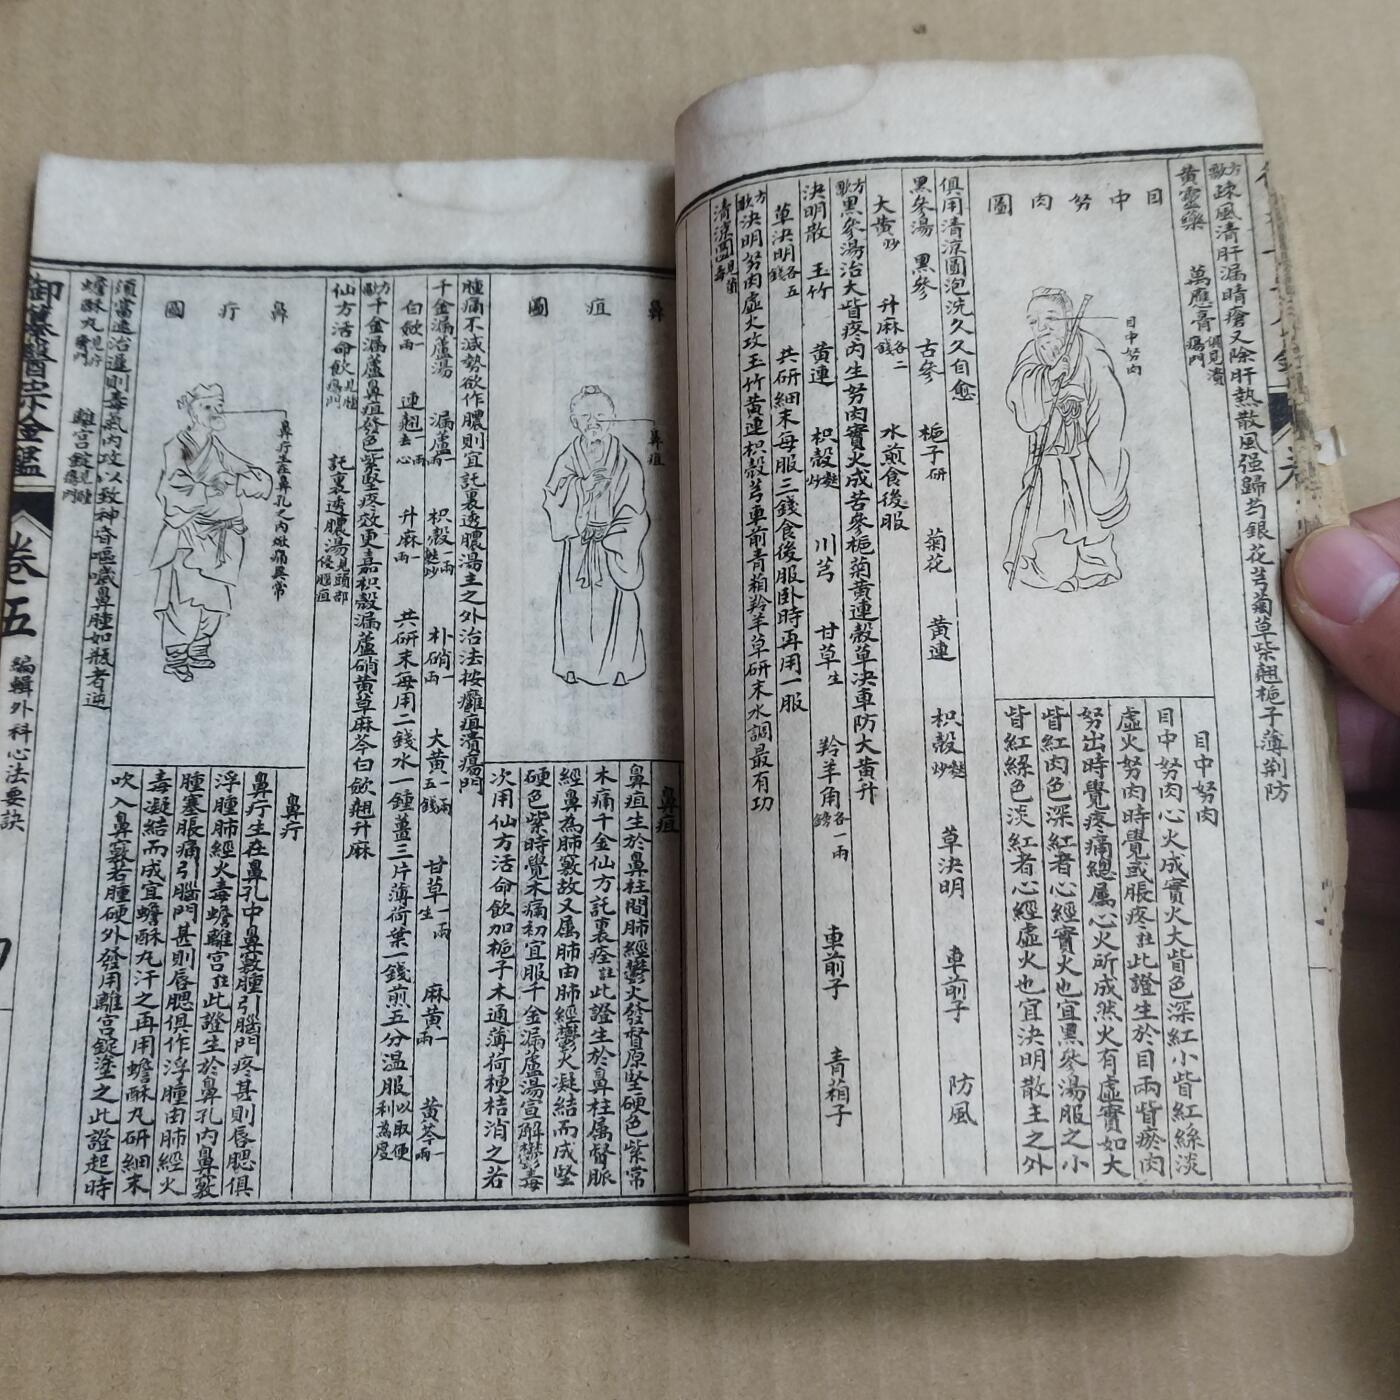 方歌疎風清肝漏睛瘡又除肝熱散風强歸芍銀花芎菊草柴翹梔子薄荆防
黄靈藥 萬應膏俱見潰瘍門
目中努肉圖
目中努肉
目中努肉
目中努肉心火成實火大眥色深紅小眥紅絲淡
虛火努肉時覺或脹疼註此證生於目兩眥瘀肉
努出時覺疼痛總屬心火所成然火有虛實如大
眥紅肉色深紅者心經實火也宜黑參湯服之小
眥紅絲色淡紅者心經虛火也宜決明散主之外
俱用清涼圓泡洗久久自愈
黑參湯 黑參 古參 梔子研 菊花 黄連 枳殼麩炒 草決明 車前子 防風
大黄炒 升麻各二錢 水煎食後服
方歌黑參湯治大眥疼内生努肉實火成苦參梔菊黄連殼草決車防大黄升
決明散 玉竹 黄連 枳殼麩炒 川芎 甘草生 羚羊角鎊各一兩 車前子 青葙子
草決明各五錢 共研細末每服三錢食後服卧時再用一服
方歌決明努肉虛火攻玉竹黄連枳殼芎車前青葙羚羊草研末水調最有功
清涼圓見菌毒
鼻疽圖
鼻疽
鼻疽
鼻疽生於鼻柱間肺經鬱火發督原堅硬色紫常
木痛千金仙方託裏痊註此證生於鼻柱属督脈
經鼻為肺竅故又属肺由肺經鬱火凝結而成堅
硬色紫時覺木痛初宜服千金漏蘆湯宣解鬱毒
次用仙方活命飲加梔子木通薄荷梗桔消之若
腫痛不減勢欲作膿則宜託裏透膿湯主之外治法按癰疽潰瘍門
千金漏蘆湯 漏蘆一兩 枳殼麩炒一兩 朴硝一兩 大黄一兩五錢 甘草生一兩 麻黄一兩 黄芩一兩
白蘞一兩 連翹去心一兩 升麻一兩 共研末每用二錢水一鍾薑三片薄荷葉一錢煎五分温服以利取便為度
方歌千金漏蘆鼻疽發色紫堅疼效更嘉枳殼漏蘆硝黄草麻芩白蘞翹升麻
仙方活命飲見腫瘍門 託裏透膿湯見頭部侵腦疽
鼻疔圖
鼻疔生在鼻孔之内焮痛異常
鼻疔
鼻疔生在鼻孔中鼻竅腫引腦門疼甚則唇腮俱
浮腫肺經火毒蟾離宫註此證生於鼻孔内鼻竅
腫塞脹痛引腦門甚則唇腮俱作浮腫由肺經火
毒凝結而成宜蟾酥丸汗之再用蟾酥丸研細末
吹入鼻竅若腫硬外發用離宫錠塗之此證起時
須當速治遲則毒氣内攻以致神昏嘔噦鼻腫如瓶者逆
蟾酥丸見疔瘡門 離宫錠見腫瘍門
御纂醫宗金鑑
卷五
編輯外科心法要訣